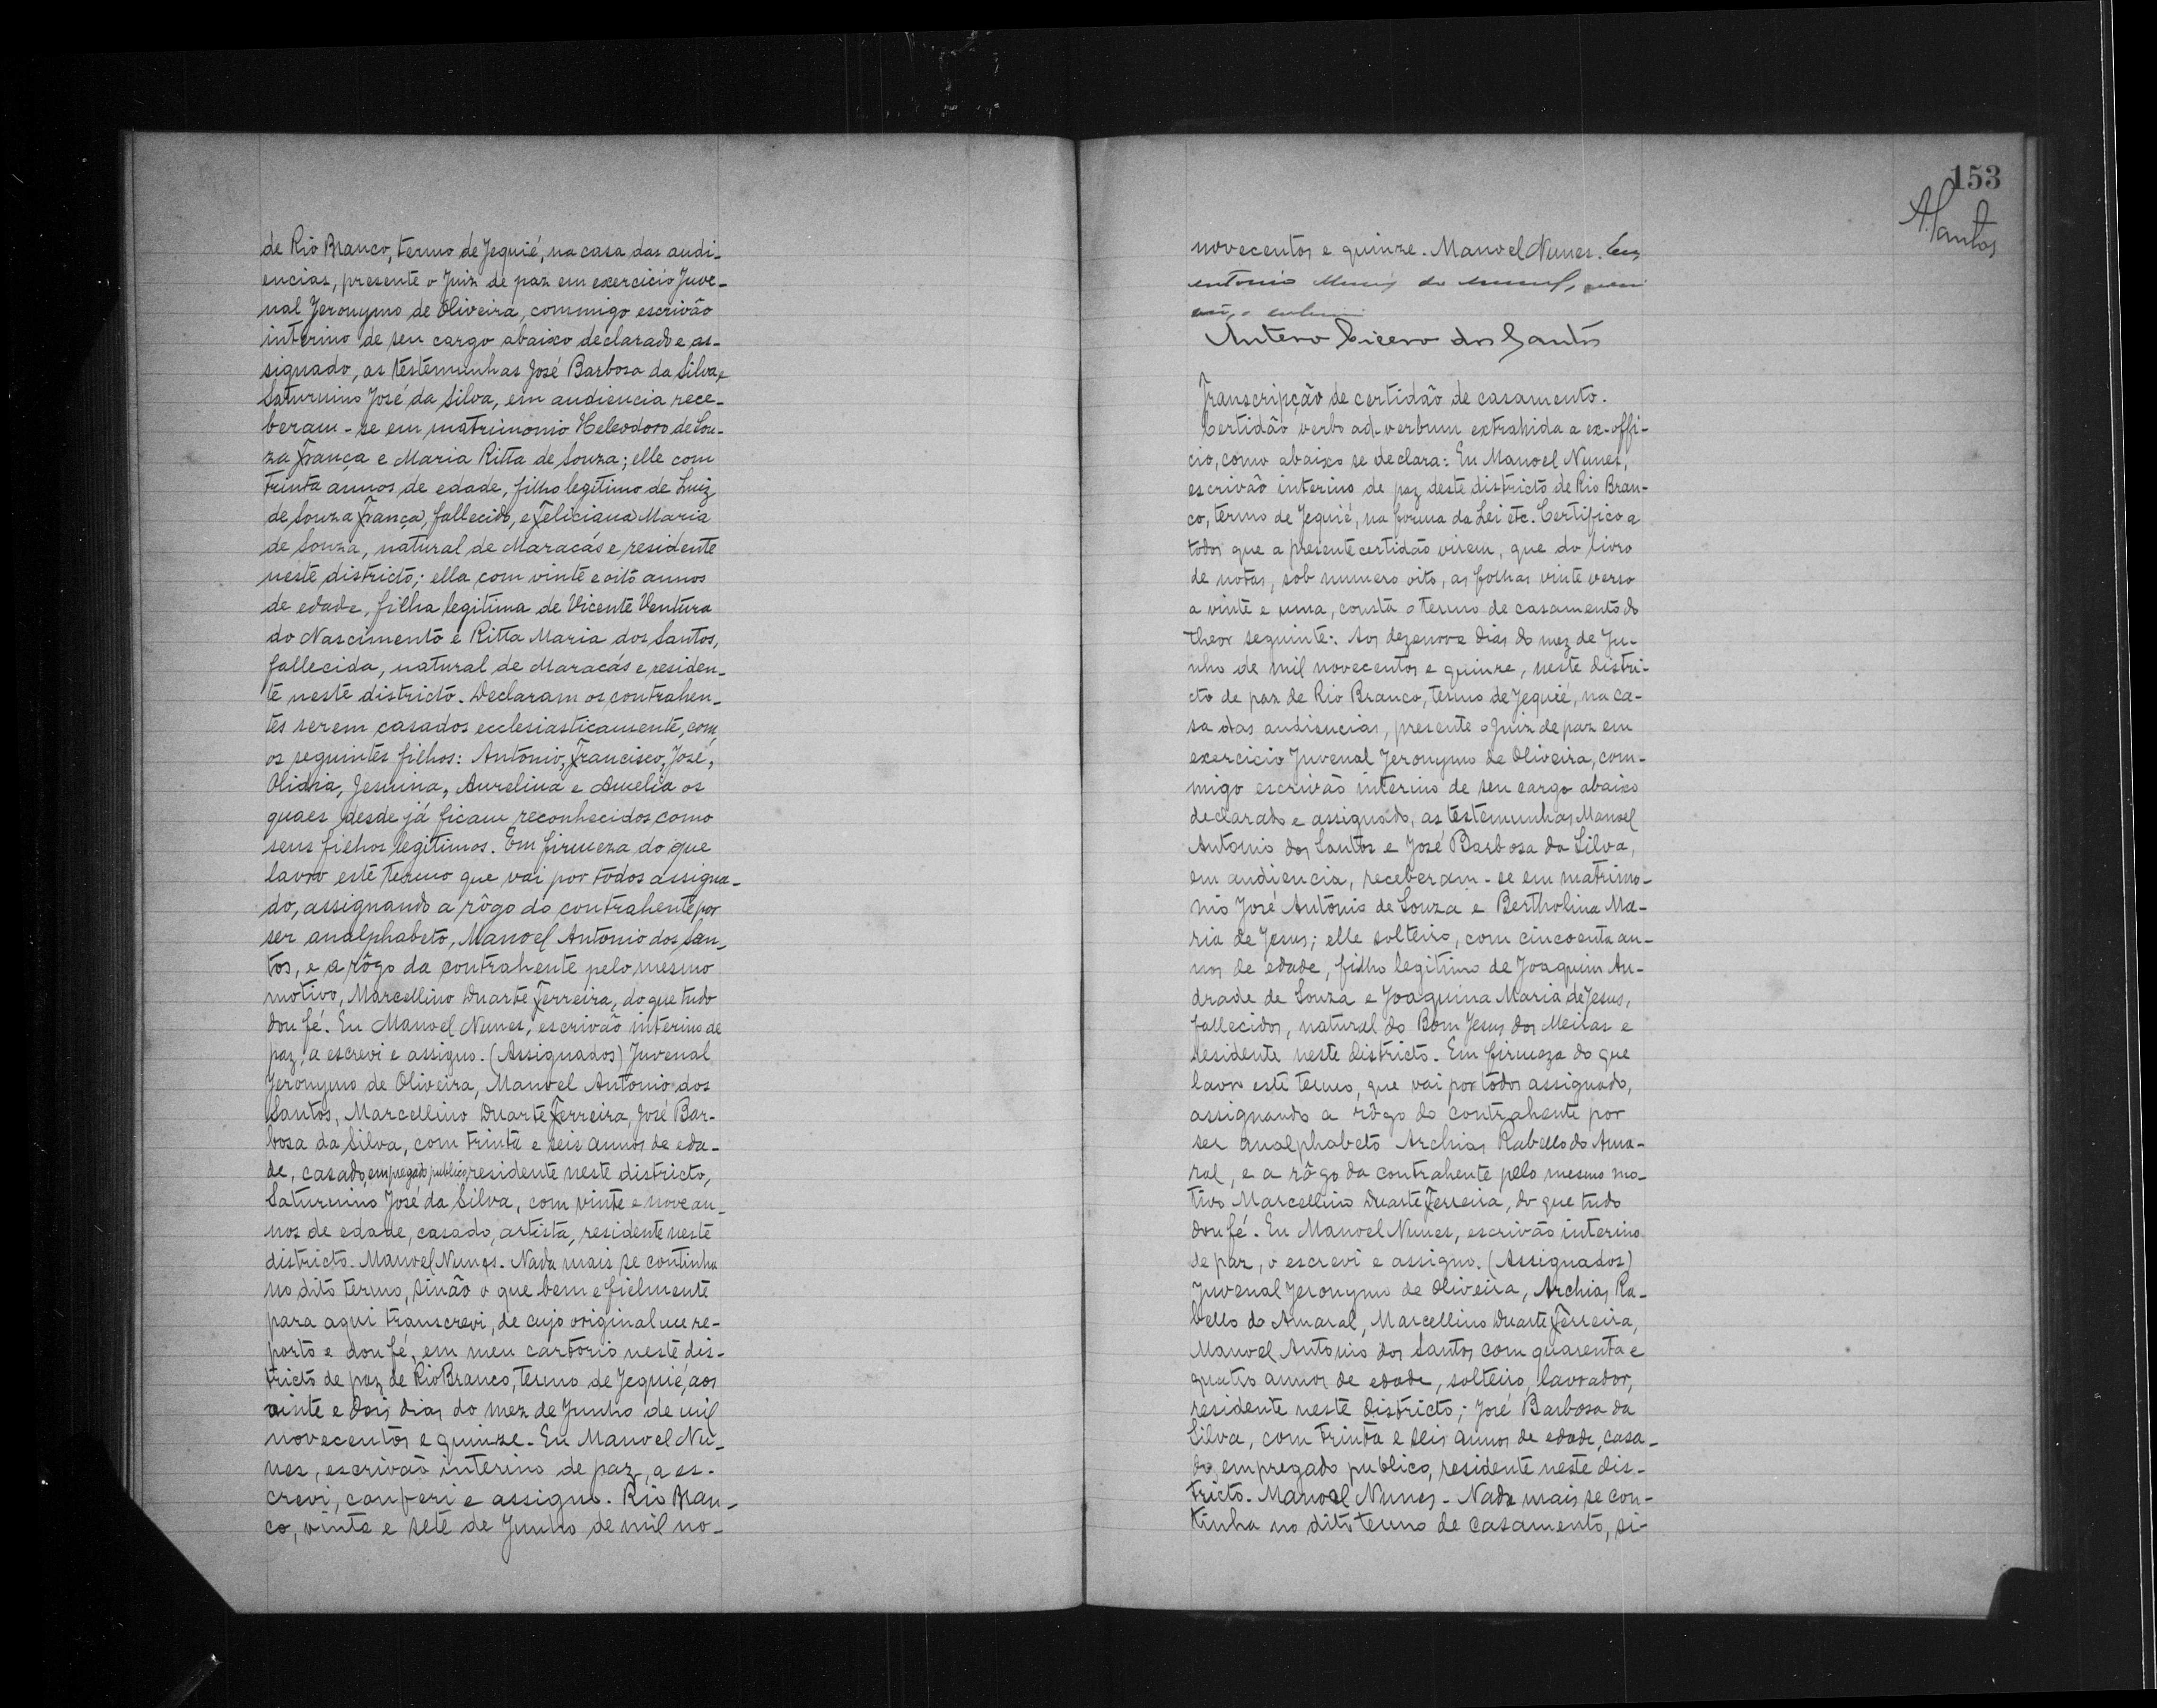 de Rio Branco, termo de Jequié, na casa das audi-
encias, presente o Juiz de paz em exercicio Juve-
nal Jeronymo de Oliveira, commigo escrivão
interino de seu cargo abaixo declarado e as-
signado, as testemunhas José Barbosa da Silva e
Saturnino José da Silva, em audiencia rece-
beram-se em matrimonio Heleodoro de Sou-
za França e Maria Ritta de Souza; elle com
trinta annos de edade, filho legitimo de Luiz
de Souza França, fallecido, e Feliciana Maria
de Souza, natural de Maracás e residente
neste districto; ella com vinte e oito annos
de edade, filha legitima de Vicente Ventura
do Nascimento e Ritta Maria dos Santos,
fallecida, natural de Maracás e residen-
te neste districto. Declaram os contrahen-
tes serem casados ecclesiasticamente, com
os seguintes filhos: Antonio, Francisco, José,
Olidia, Jesuina, Aurelina e Amelia os
quaes desde já ficam reconhecidos como
seus filhos legitimos. Em firmeza do que
lavro este termo que vai por todos assigna-
do, assignando a rôgo do contrahente por
ser analphabeto, Manoel Antonio dos San-
tos, e a rôgo da contrahente pelo mesmo
motivo, Marcellino Duarte Ferreira, do que tudo
dou fé. Eu Manoel Nunes, escrivão interino de
paz, a escrevi e assigno. (Assignados) Juvenal
Jeronymo de Oliveira, Manoel Antonio dos
Santos, Marcellino Duarte Ferreira, José Bar-
bosa da Silva, com trinta e seis annos de eda-
de, casado, empregado publico, residente neste districto,
Saturnino José da Silva, com vinte e nove an-
nos de edade, casado, artista, residente neste
districto. Manoel Nunes. Nada mais se continha
no dito termo, sinão o que bem e fielmente
para aqui transcrevi, de cujo original me re-
porto e dou fé, em meu cartorio neste dis-
tricto de paz de Rio Branco, termo de Jequié, aos
vinte e dois dias do mez de Junho de mil
novecentos e quinze. Eu Manoel Nu-
nes, escrivão interino de paz, a es-
crevi, conferi e assigno. Rio Bran-
co, vinte e sete de Junho de mil no-
153
A. Santos
novecentos e quinze. Manoel Nunes. Eu,
Antonio
Antero Cicero dos Santos
Transcripção de certidão de casamento.
Certidão verbo ad-verbum extrahida a ex-offi-
cio, como abaixo se declara: Eu Manoel Nunes,
escrivão interino de paz deste districto de Rio Bran-
co, termo de Jequié, na forma da Lei etc. Certifico a
todos que a presente certidão virem, que do livro
de notas, sob numero oito, as folhas vinte verso
a vinte e uma, consta o termo de casamento do
theor seguinte: Aos dezenove dias do mez de Ju-
nho de mil novecentos e quinze, neste distri-
cto de paz de Rio Branco, termo de Jequié, na ca-
sa das audiencias, presente o Juiz de paz em
exercicio Juvenal Jeronymo de Oliveira, com-
migo escrivão interino de seu cargo abaixo
declarado e assignado, as testemunhas Manoel
Antonio dos Santos e José Barbosa da Silva,
em audiencia, receberam-se em matrimo-
nio José Antonio de Souza e Bertholina Ma-
ria de Jesus; elle solteiro, com cincoenta an-
nos de edade, filho legitimo de Joaquim An-
drade de Souza e Joaquina Maria de Jesus,
fallecidos, natural do Bom Jesus dos Meiras e
residente neste districto. Em firmeza do que
lavro este termo, que vai por todos assignado,
assignando a rôgo do contrahente por
ser analphabeto Archias Rabello do Ama-
ral, e a rôgo da contrahente pelo mesmo mo-
tivo Marcellino Duarte Ferreira, do que tudo
dou fé. Eu Manoel Nunes, escrivão interino
de paz, o escrevi e assigno. (Assignados)
Juvenal Jeronymo de Oliveira, Archias Ra-
bello do Amaral, Marcellino Duarte Ferreira,
Manoel Antonio dos Santos com quarenta e
quatro annos de edade, solteiro, lavrador,
residente neste districto; José Barbosa da
Silva, com trinta e seis annos de edade, casa-
do, empregado publico, residente neste dis-
tricto. Manoel Nunes. Nada mais se con-
tinha no dito termo de casamento, si-